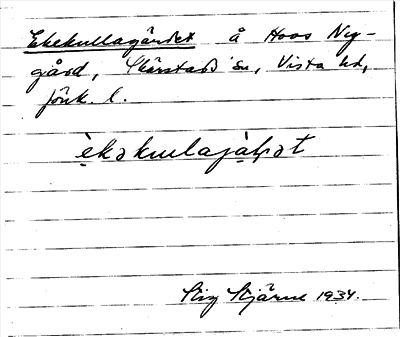 Ekekullagärdet å Hoos Ny-
gård, Skärstads sn, Vista hd,
Jönk. l.
èkəkullajàḷṇət
Stig Stjärne 1934.